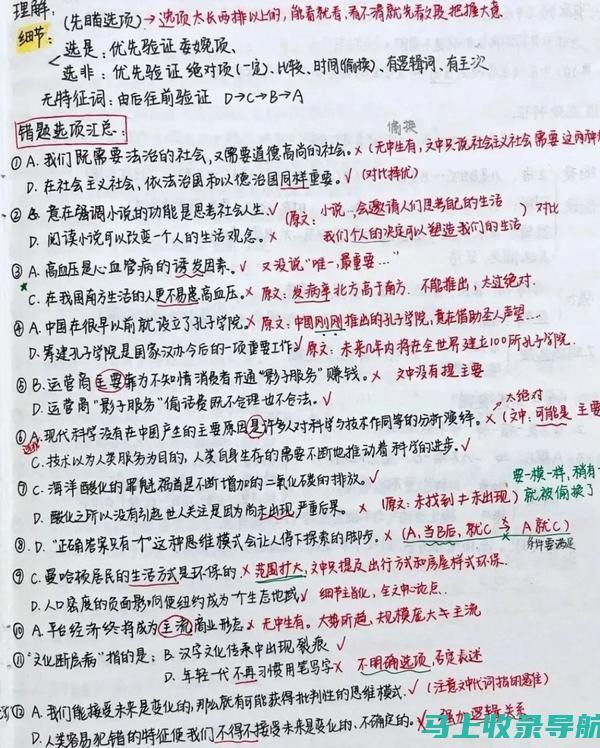 理解:
(先瞄选项)→选项太长两排以上的,能看就看,看不清就先看文段把握大意
细节:
选是:优先验证委婉项、
选非:优先验证绝对项(一定)、比较、时间(偷换)、有逻辑词、有主次
无特征词:由后往前验证 D→C→B→A
错题选项汇总:
偷换
①A.我们既需要法治的社会,又需要道德高尚的社会。×(无中生有,文中只说社会主义社会需要这两种
D.在社会主义社会,依法治国和以德治国同样重要。√(对比择优)
②B.意在强调小说的功能是思考社会人生√(原文:小说…会邀请人们思考配的生活)对比
D.阅读小说可以改变一个人的生活观念。× 我们个人的决定可以塑造我们的生活
③A.高血压是心血管病的诱发因素。√ 又没说"唯一,最重要…"
C.在我国南方生活的人更不易患高血压。×原文:发病率北方高于南方.不能推出,太过绝对.
④A.中国在很早以前就设立了孔子学院。×原文:中国刚刚推出的孔子学院,意在借助圣人声望…
D.筹建孔子学院是国家汉办今后的一项重要工作√原文:未来几年内将在全世界建立100所孔子学院.
⑤B.运营商主要靠为不知情消费者开通"影子服务"赚钱。× 文中没有提主要
D.运营商"影子服务"偷话费既不合理也不合法。√
太绝对
⑥A.现代科学没有在中国产生的主要原因是许多人对科学与技术作同等的分析演绎。×(文中:可能是 主要
C.技术以为人类服务为目的,人类自身生存的需要不断地推动着科学的进步。√
⑦C.海洋酸化的罪魁祸首是不断增加的二氧化碳的排放。√
要一模一样,稍有
就被偷换了
D.酸化之所以没有引起世人关注是因为尚未出现严重后果。×(原文:未找到≠未出现)
⑧D."正确答案只有一个"这种思维模式会让人停下探索的脚步。×(A,当B后,就C→A就C)
条件要满足
⑨C.曼哈顿居民的生活方式是环保的×范围扩大,文中只提及出行方式和房屋样式环保.
D.人口密度的负面影响使纽约成为一个生态地域√细节主旨化,全文中心论点.
⑩A.平台经济终将成为主流商业形态×无中生有。大势所趋,规模庞大≠主流
⑪"文化断层病"指的是:B.汉字文化传承中出现裂痕√
D.年轻一代不再习惯用笔写字×不明确选项,否度表述
⑫A.我们能接受未来是变化的,那么就有可能获得批判性的思维模式.√(注意文中代词指的是谁)
D.人类容易犯错的特征使我们不得不接受未来是变化的、不确定的。×强加逻辑关系
马上收录导航